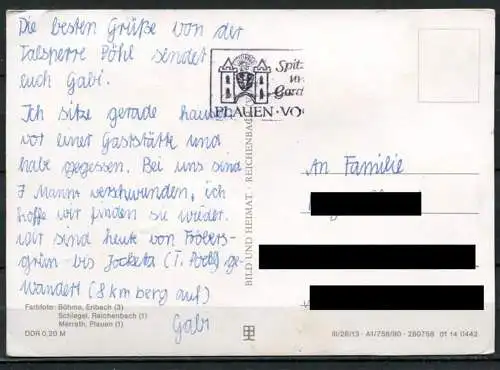 Die besten Grüße von der
Talsperre Pöhl sendet
euch Gabi.
Ich sitze gerade haußen
vor einer Gaststätte und
habe gegessen. Bei uns sind
7 Mann verschwunden, ich
hoffe wir finden sie wieder.
Wir sind heute von Fröbers-
grün bis Jocketa (T. Pöhl) ge-
wandert (8 km berg auf)
Gabi
Farbfoto: Böhme, Erlbach (3)
Schlegel, Reichenbach (1)
Merrath, Plauen (1)
DDR 0,20 M
BILD UND HEIMAT · REICHENBACH
Spitz
un
Gard
PLAUEN · VO
An Familie
III/26/13 · A1/758/80 · 280758 01 14 0442